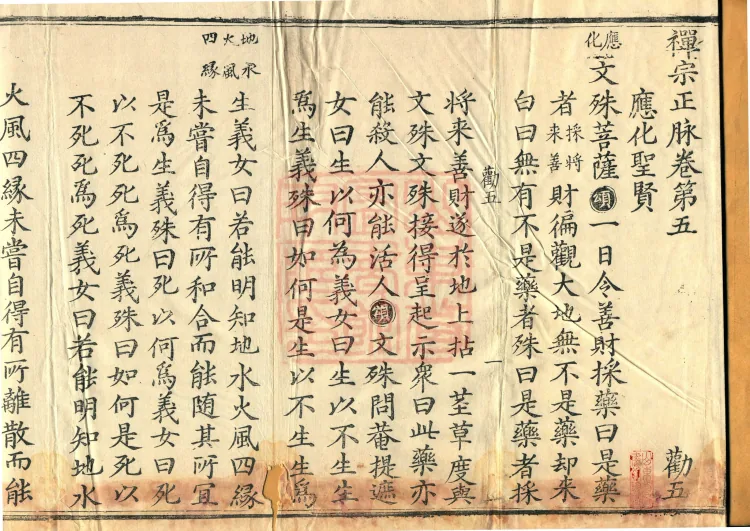 禪宗正脉卷第五 勸五
應化聖賢
應化
文殊菩薩 頌 一日令善財採藥曰是藥
者採將來善財徧觀大地無不是藥却來
白曰無有不是藥者殊曰是藥者採
勸五 一
將来善財遂於地上拈一莖草度與
文殊文殊接得呈起示衆曰此藥亦
能殺人亦能活人 頌 文殊問菴提遮
女曰生以何為義女曰生以不生生
爲生義殊曰如何是生以不生生爲
地水火風四緣
生義女曰若能明知地水火風四緣
未嘗自得有所和合而能随其所宜
是爲生義殊曰死以何爲義女曰死
以不死死爲死義殊曰如何是死以
不死死爲死義女曰若能明知地水
火風四緣未嘗自得有所離散而能